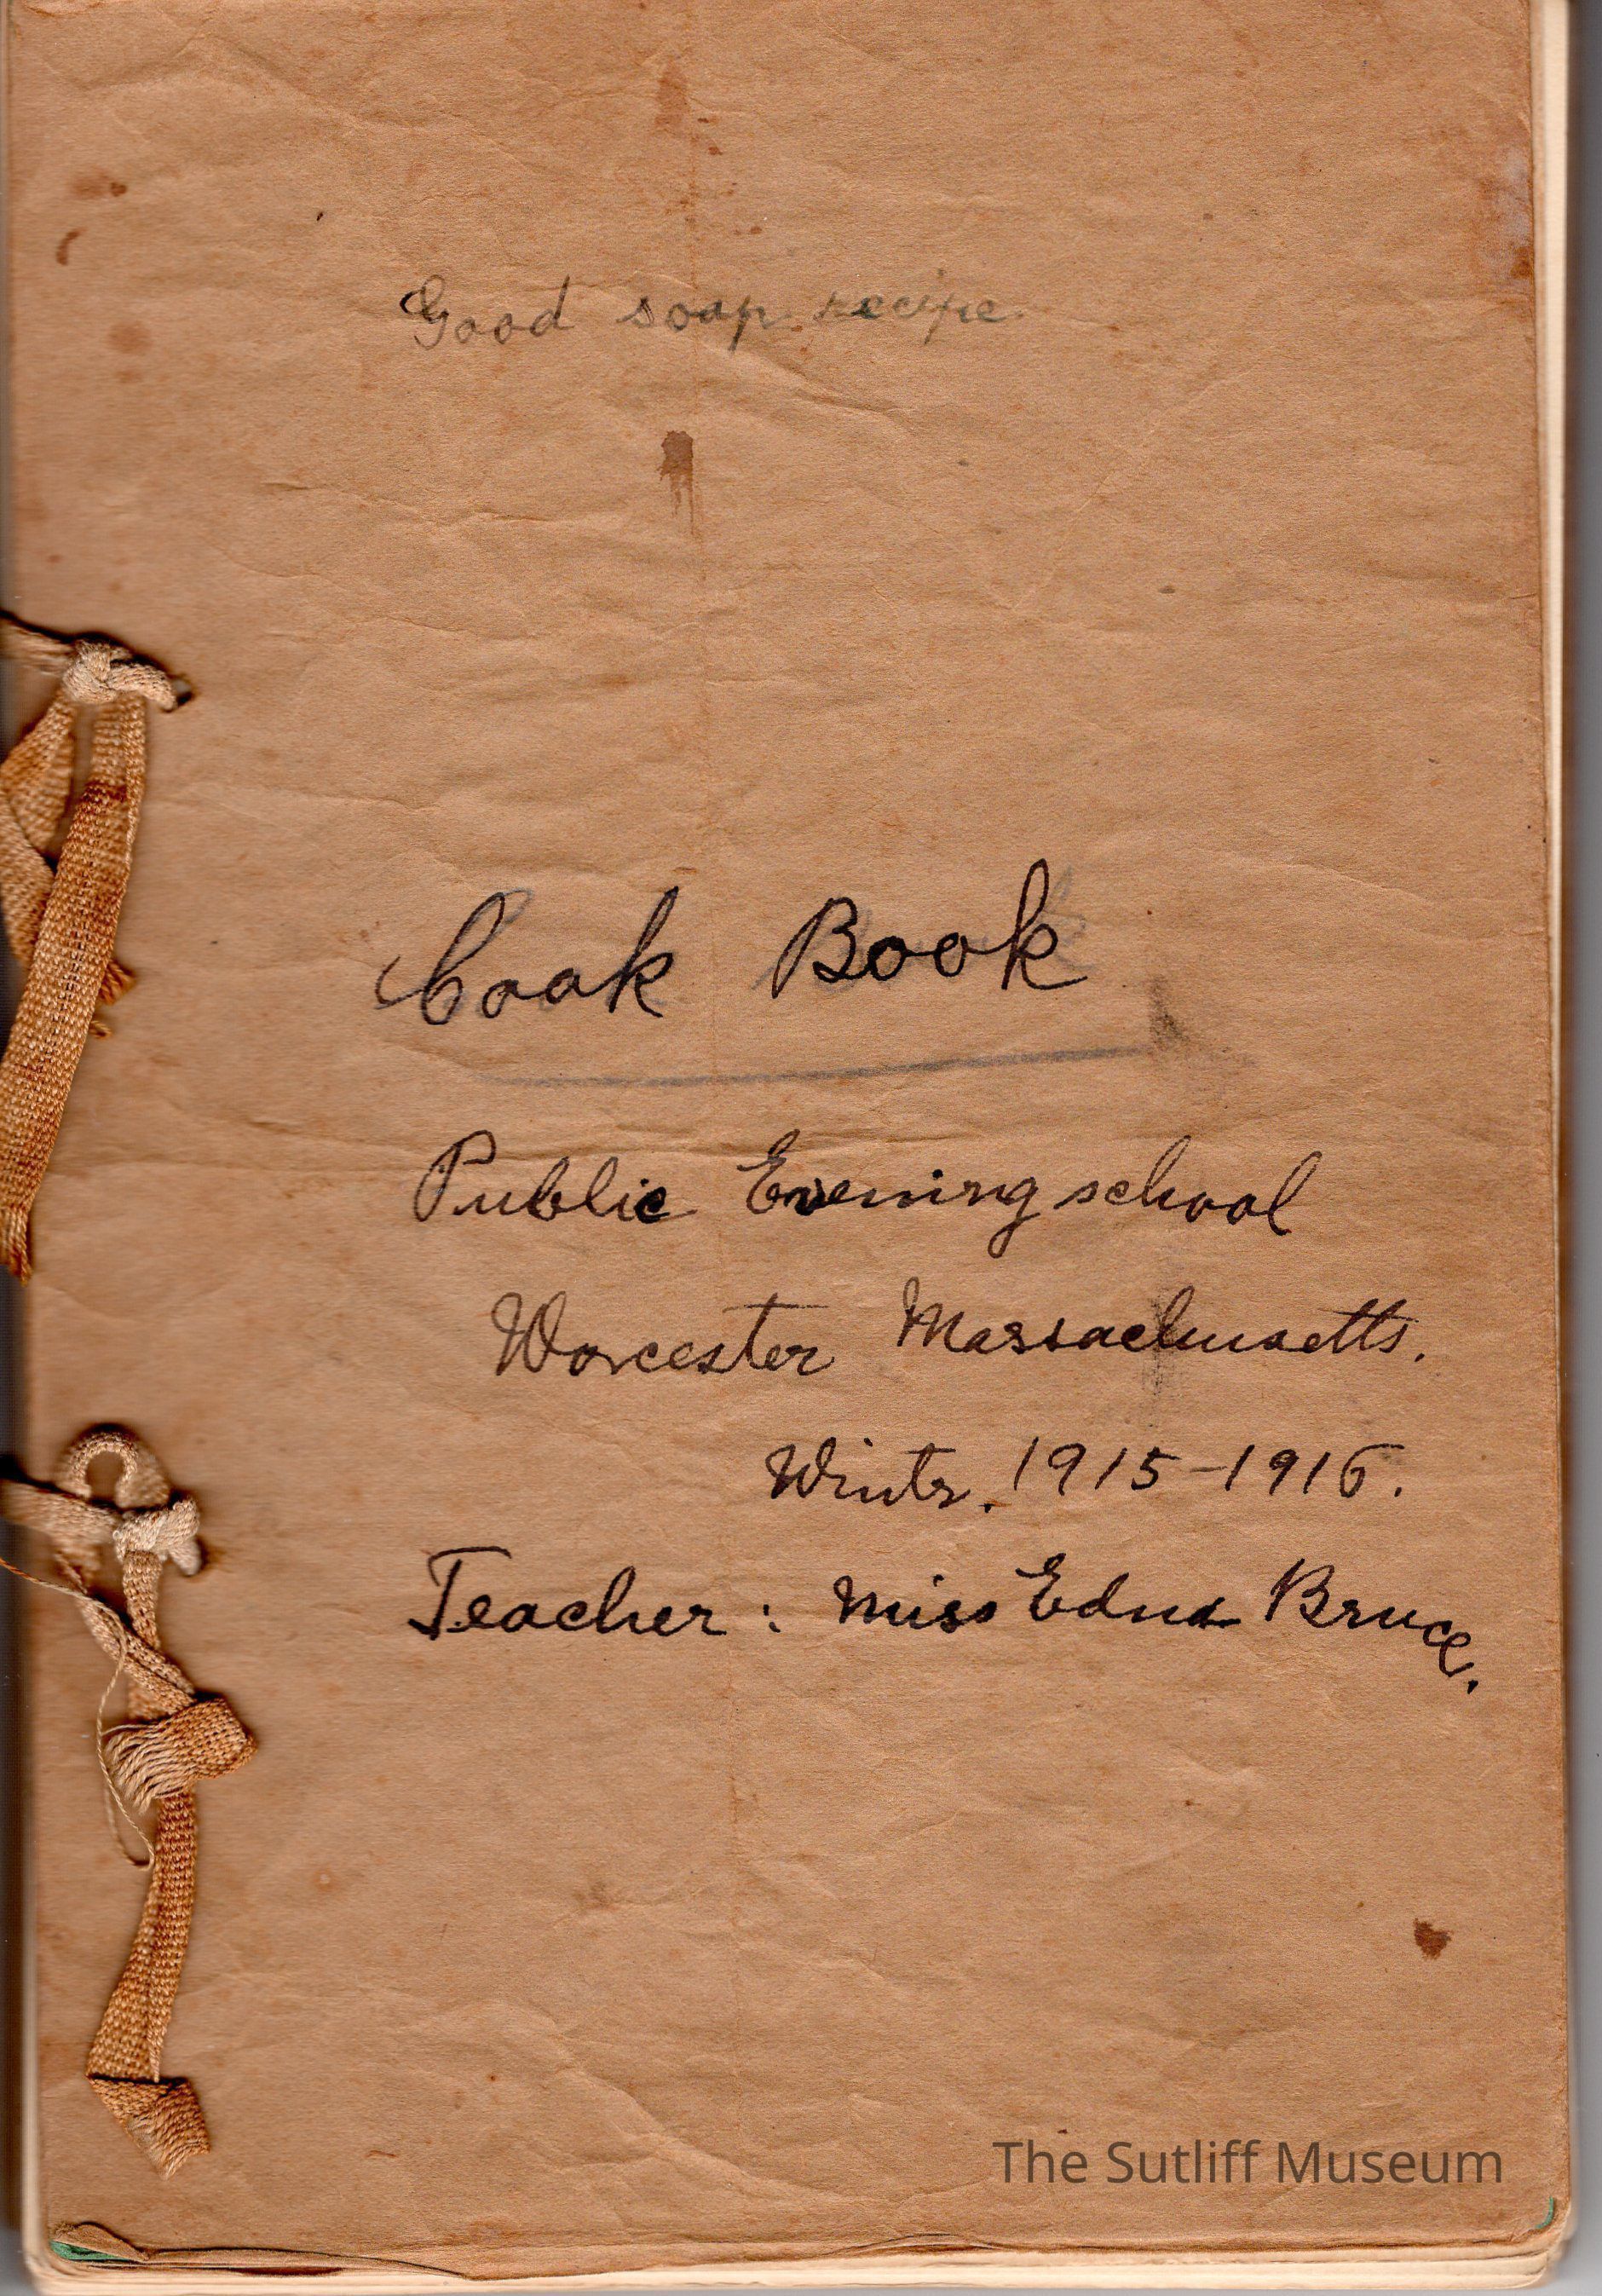 Good soap recipe.
Cook Book
Public Evening school
Worcester Massachusetts.
Wintr. 1915-1916.
Teacher: Miss Edna Bruce.
The Sutliff Museum